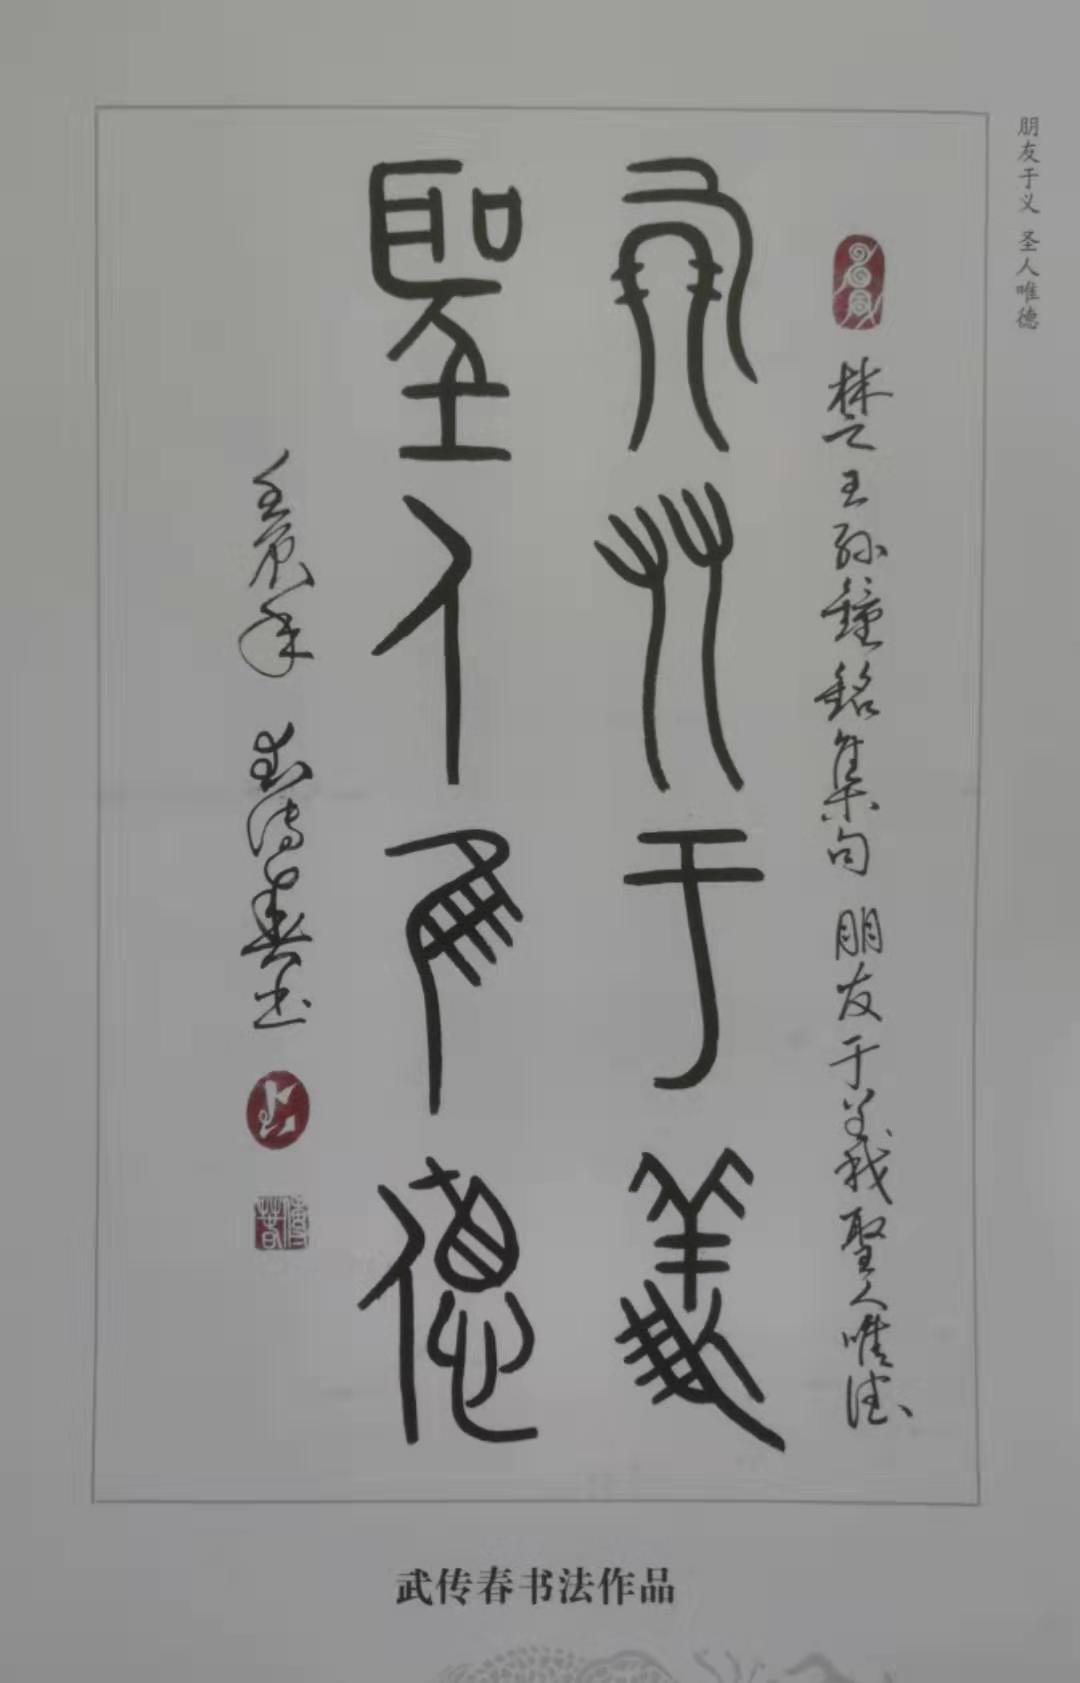 朋友于义 圣人唯德
楚王孙鐘銘集句 朋友于義聖人唯德
朋友于義
聖人唯德
壬辰年 武传春书
武传春书法作品